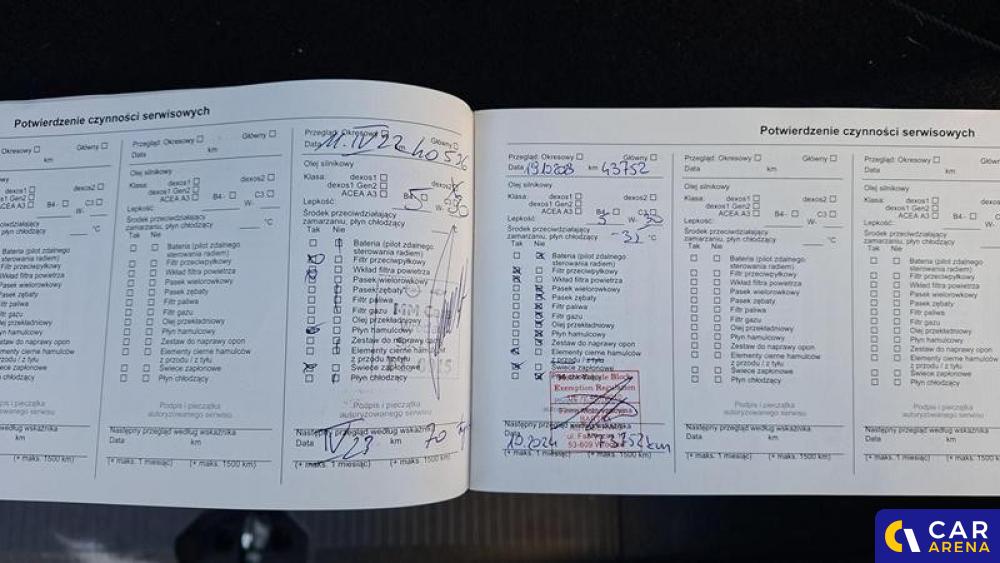 Potwierdzenie czynności serwisowych
Okresowy Główny
km
dexos1
dexos2
dexos1 Gen2
ACEA A3 B4- C3
W-
Środek przeciwdziałający
zamarzaniu, płyn chłodzący °C
Nie
Bateria (pilot zdalnego
sterowania radiem)
Filtr przeciwpyłkowy
Wkład filtra powietrza
Pasek wielorowkowy
Pasek zębaty
Filtr paliwa
Filtr gazu
Olej przekładniowy
Płyn hamulcowy
Zestaw do naprawy opon
Elementy cierne hamulców
z przodu / z tyłu
Świece zapłonowe
Płyn chłodzący
Podpis i pieczątka
autoryzowanego serwisu
Następny przegląd według wskaźnika
km
(+ maks. 1500 km)
Przegląd: Okresowy Główny
Data km
Olej silnikowy
Klasa: dexos1 dexos2
dexos1 Gen2
ACEA A3 B4- C3
Lepkość: W-
Środek przeciwdziałający
zamarzaniu, płyn chłodzący °C
Tak Nie
Bateria (pilot zdalnego
sterowania radiem)
Filtr przeciwpyłkowy
Wkład filtra powietrza
Pasek wielorowkowy
Pasek zębaty
Filtr paliwa
Filtr gazu
Olej przekładniowy
Płyn hamulcowy
Zestaw do naprawy opon
Elementy cierne hamulców
z przodu / z tyłu
Świece zapłonowe
Płyn chłodzący
Podpis i pieczątka
autoryzowanego serwisu
Następny przegląd według wskaźnika
Data km
(+ maks. 1 miesiąc) (+ maks. 1500 km)
Przegląd: Okresowy Główny
Data 11.IV 22 km 40 536
Olej silnikowy
Klasa: dexos1 dexos2
dexos1 Gen2
ACEA A3 B4-
Lepkość: 5 30
Środek przeciwdziałający
zamarzaniu, płyn chłodzący
Tak Nie
Bateria (pilot zdalnego
sterowania radiem)
Filtr przeciwpyłkowy
Wkład filtra powietrza
Pasek wielorowkowy
Pasek zębaty
Filtr paliwa
Filtr gazu
Olej przekładniowy
Płyn hamulcowy
Zestaw do naprawy opon
Elementy cierne hamulców
z przodu / z tyłu
Świece zapłonowe
Płyn chłodzący
Podpis i pieczątka
autoryzowanego serwisu
Następny przegląd według wskaźnika
Data IV 23 km 70
(+ maks. 1 miesiąc) (+ maks. 1500 km)
Potwierdzenie czynności serwisowych
Przegląd: Okresowy Główny
Data km 43752
Olej silnikowy
Klasa: dexos1 dexos2
dexos1 Gen2
ACEA A3 B4- C3
Lepkość: 5 W- 30
Środek przeciwdziałający
zamarzaniu, płyn chłodzący -32 °C
Tak Nie
Bateria (pilot zdalnego
sterowania radiem)
Filtr przeciwpyłkowy
Wkład filtra powietrza
Pasek wielorowkowy
Pasek zębaty
Filtr paliwa
Filtr gazu
Olej przekładniowy
Płyn hamulcowy
Zestaw do naprawy opon
Elementy cierne hamulców
z przodu / z tyłu
Świece zapłonowe
Block
Exemption Regulation
Następny przegląd według wskaźnika
Data 10.2024 km
(+ maks. 1 miesiąc) (+ maks. 1500 km)
Przegląd: Okresowy Główny
Data km
Olej silnikowy
Klasa: dexos1 dexos2
dexos1 Gen2
ACEA A3 B4- C3
Lepkość: W-
Środek przeciwdziałający
zamarzaniu, płyn chłodzący °C
Tak Nie
Bateria (pilot zdalnego
sterowania radiem)
Filtr przeciwpyłkowy
Wkład filtra powietrza
Pasek wielorowkowy
Pasek zębaty
Filtr paliwa
Filtr gazu
Olej przekładniowy
Płyn hamulcowy
Zestaw do naprawy opon
Elementy cierne hamulców
z przodu / z tyłu
Świece zapłonowe
Płyn chłodzący
Podpis i pieczątka
autoryzowanego serwisu
Następny przegląd według wskaźnika
Data km
(+ maks. 1 miesiąc) (+ maks. 1500 km)
Przegląd: Okresowy
Data km
Olej silnikowy
Klasa: dexos1
dexos1 Gen2
ACEA A3 B4-
Lepkość: W-
Środek przeciwdziałający
zamarzaniu, płyn chłodzący
Tak Nie
Bateria (pilot zdalnego
sterowania radiem)
Filtr przeciwpyłkowy
Wkład filtra powietrza
Pasek wielorowkowy
Pasek zębaty
Filtr paliwa
Filtr gazu
Olej przekładniowy
Płyn hamulcowy
Zestaw do naprawy opon
Elementy cierne hamulców
z przodu / z tyłu
Świece zapłonowe
Płyn chłodzący
Podpis i pieczątka
autoryzowanego serwisu
Następny przegląd według wskaźnika
Data km
(+ maks. 1 miesiąc) (+ maks. 1500
CAR
ARENA